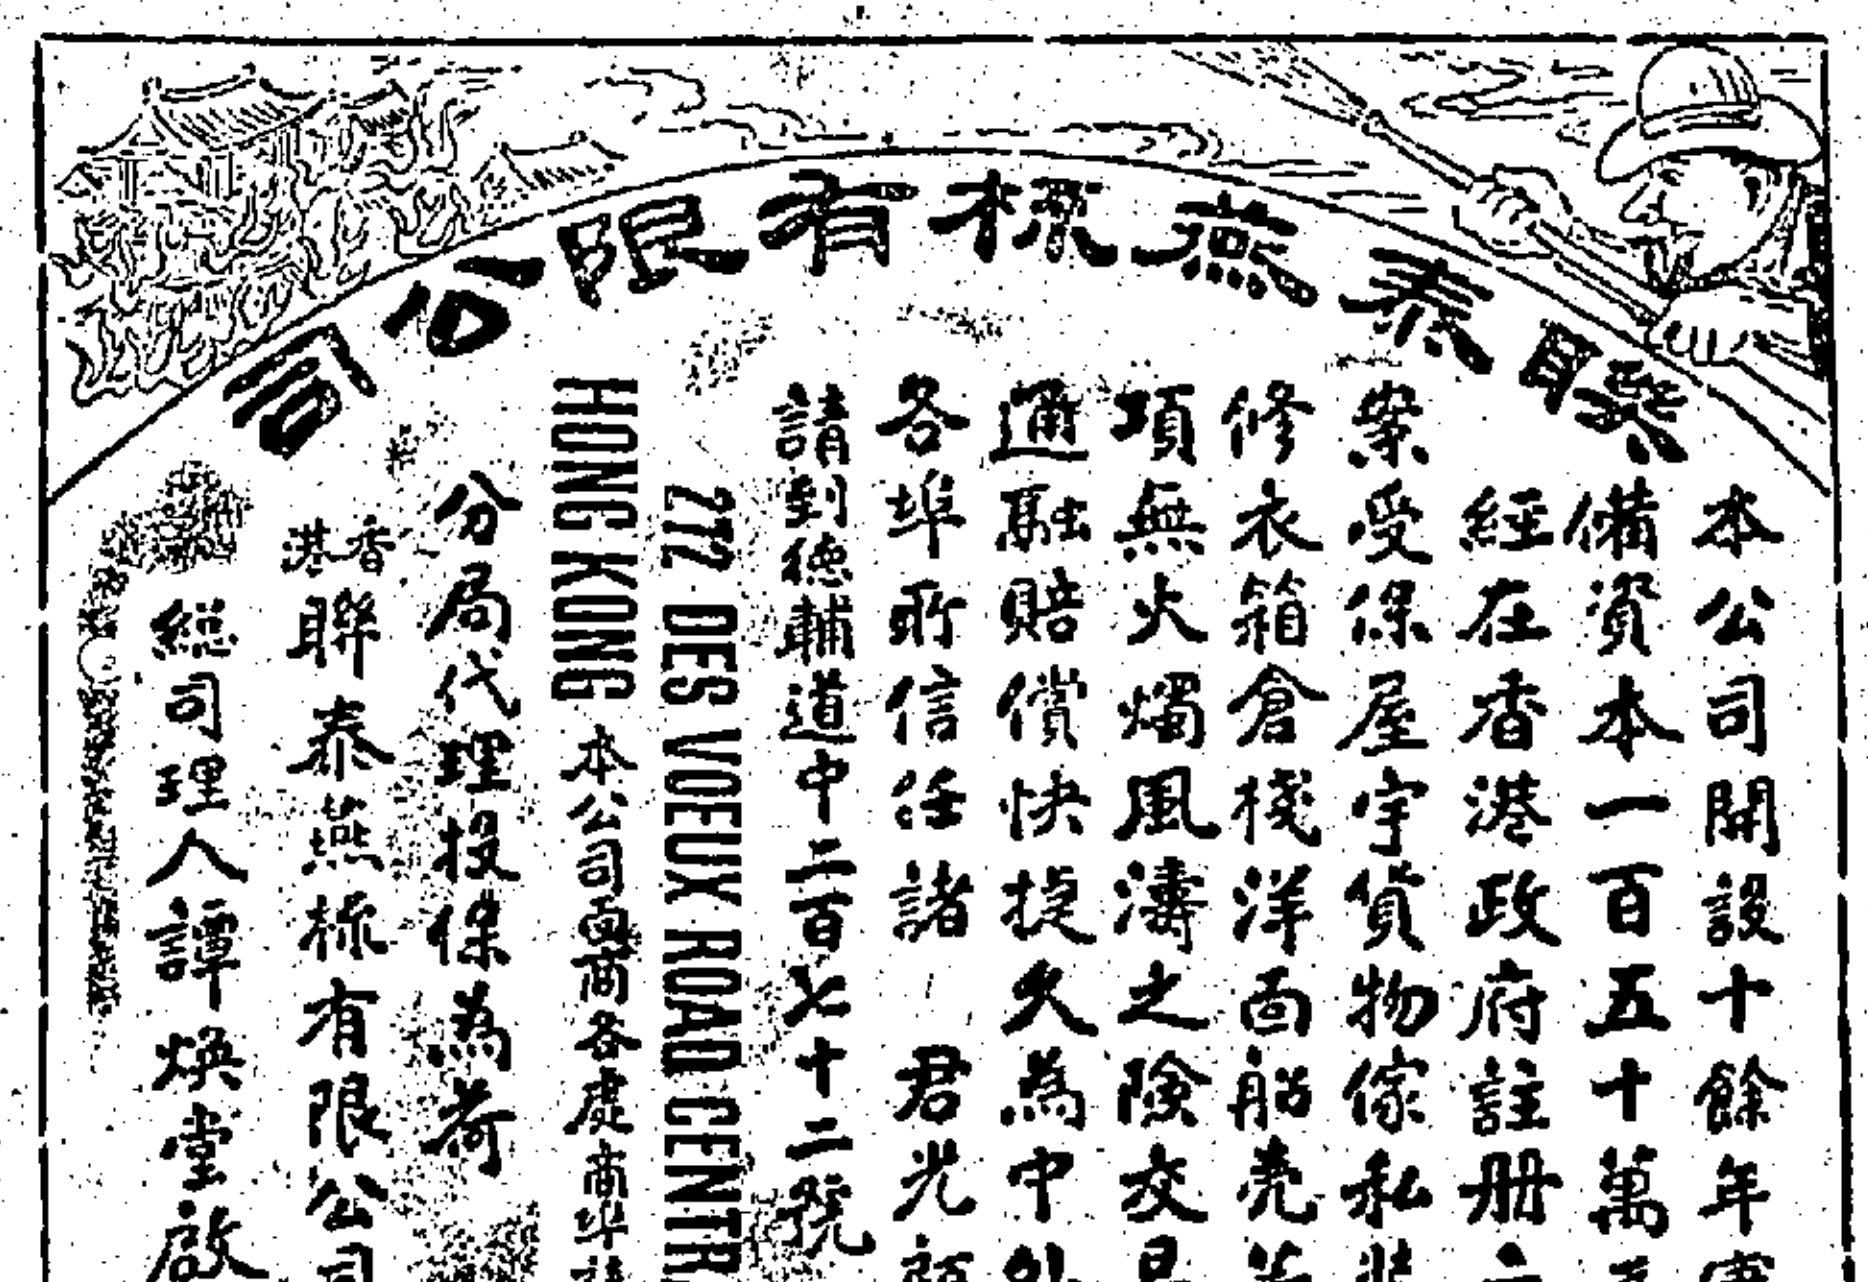 聯泰燕梳有限公司
本公司開設十餘年
備資本一百五十萬
經在香港政府註册
案受保屋宇貨物傢私
修衣箱倉棧洋面船壳
項無火燭風濤之險交
通融賠償快捷久為中外
各埠所信任諸 君光顧
請到德輔道中二百七十二號
272 DES VOEUX ROAD CENTR
HONG KONG 本公司面商各處商埠
分局代理投保為荷
香港聯泰燕梳有限公司
總司理人譚煥堂啟